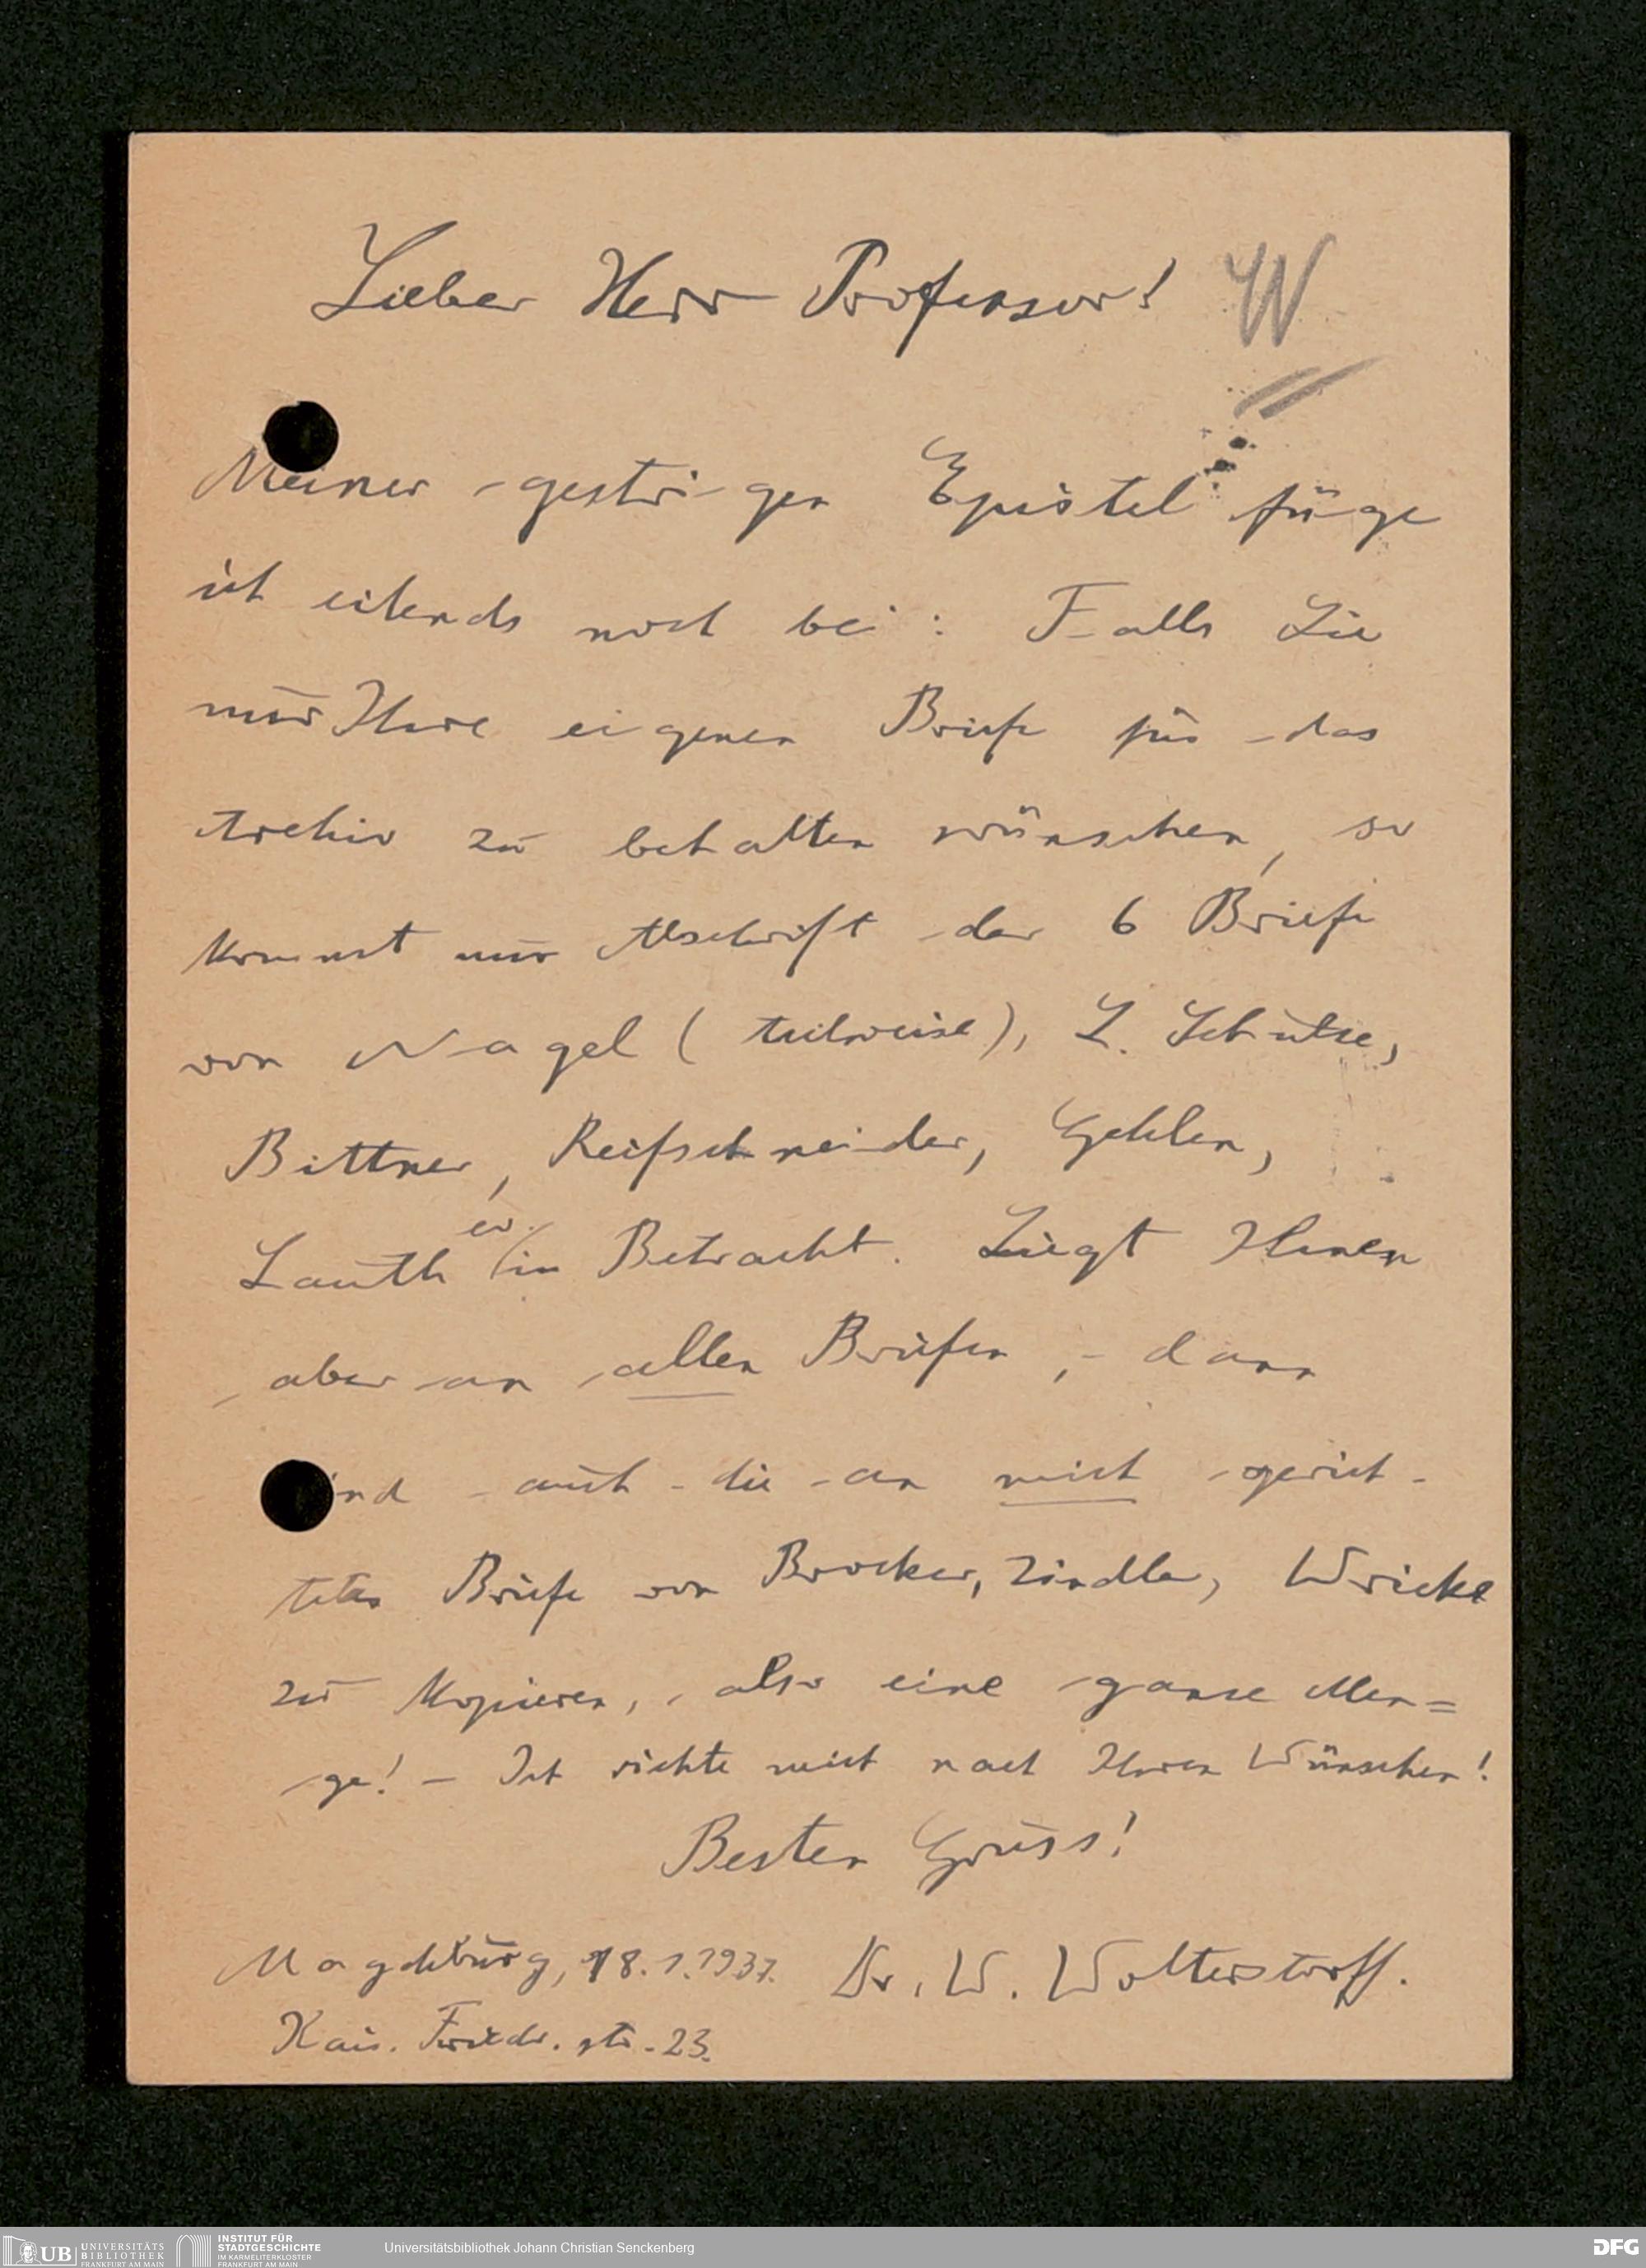 Lieber Herr Professor! W
Meiner gestrigen Epistel füge
ich eilends noch bei: Falls Sie
nur Ihre eigenen Briefe für das
Archiv zu behalten wünschen, so
kommt nur Abschrift der 6 Briefe
von Nagel (teilweise), L. Schulze,
Bittner, Reifschneider, Gehlen,
Lauth ev. in Betracht. Liegt Ihnen
aber an allen Briefen, dann
sind auch die an mich gerich-
teten Briefe von Brocker, Zindler, Wricke
zu kopieren, also eine ganze Men=
ge! – Ich richte mich nach Ihren Wünschen!
Besten Gruss!
Magdeburg, 18.1.1937. Dr. W. Wolterstorff.
Kais. Friedr. str. 23.
UB UNIVERSITÄTS
BIBLIOTHEK
FRANKFURT AM MAIN
INSTITUT FÜR
STADTGESCHICHTE
IM KARMELITERKLOSTER
FRANKFURT AM MAIN
Universitätsbibliothek Johann Christian Senckenberg
DFG